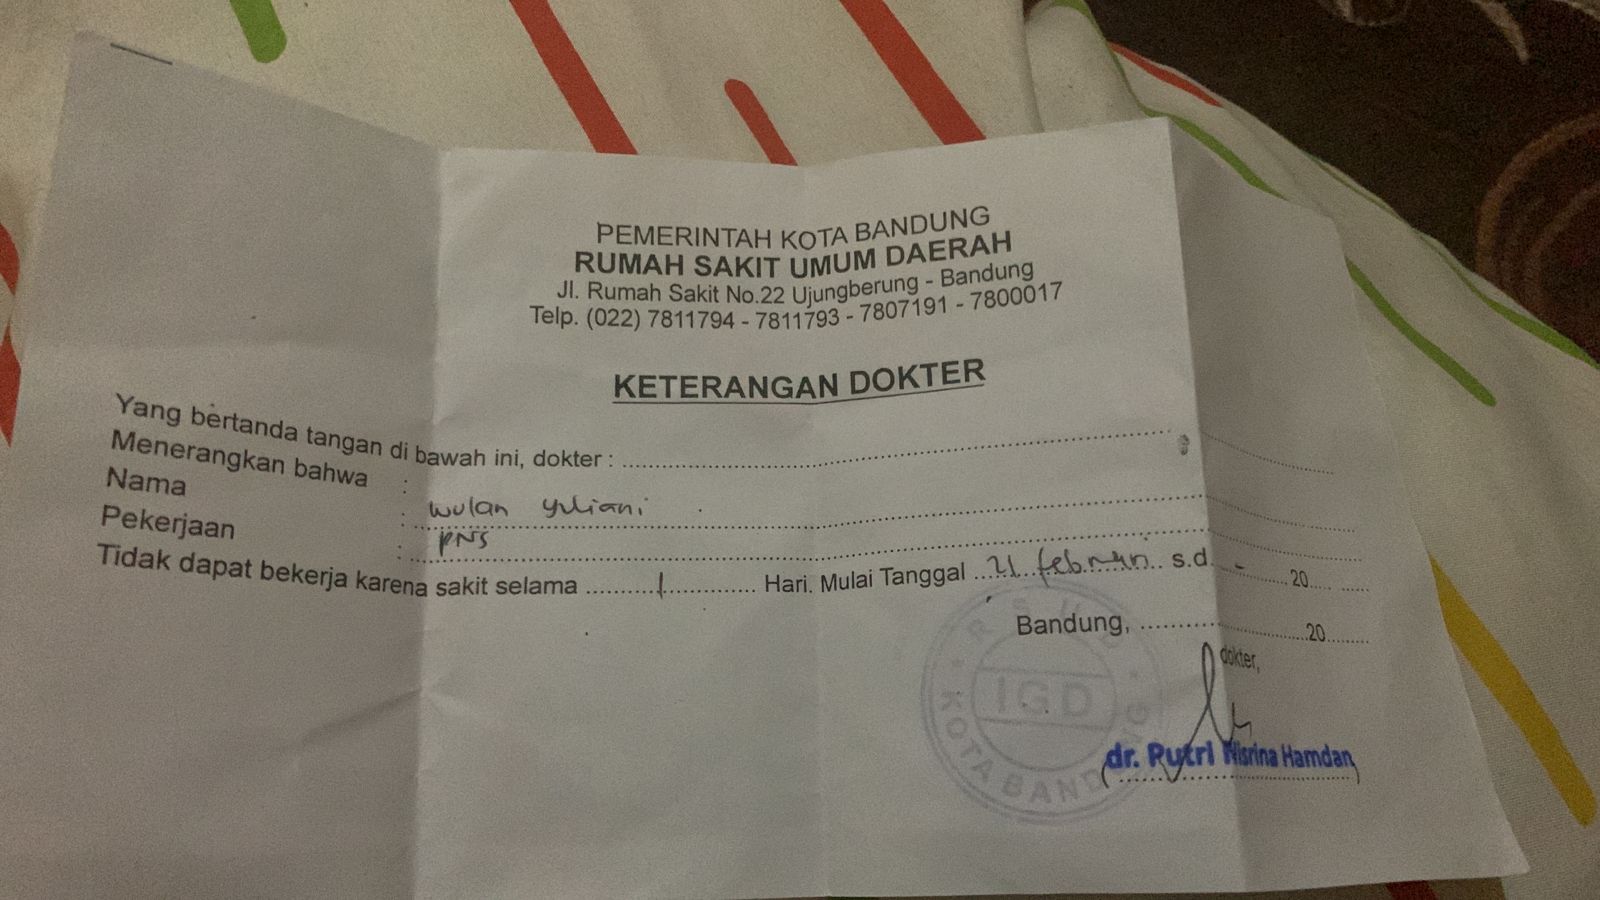 PEMERINTAH KOTA BANDUNG
RUMAH SAKIT UMUM DAERAH
Jl. Rumah Sakit No.22 Ujungberung - Bandung
Telp. (022) 7811794 - 7811793 - 7807191 - 7800017
KETERANGAN DOKTER
Yang bertanda tangan di bawah ini, dokter : ..........
Menerangkan bahwa :
Nama : wulan yuliani
Pekerjaan : PNS
Tidak dapat bekerja karena sakit selama .......... 1 .......... Hari. Mulai Tanggal 21 februari s.d. - ...... 20..........
Bandung, .................... 20........
dokter,
RSUD
IGD
KOTA BANDUNG
dr. Putri Nisrina Hamdan